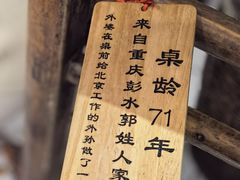 桌龄71年
来自重庆彭水郭姓人家
外婆在桌前给北京工作的外孙做了一